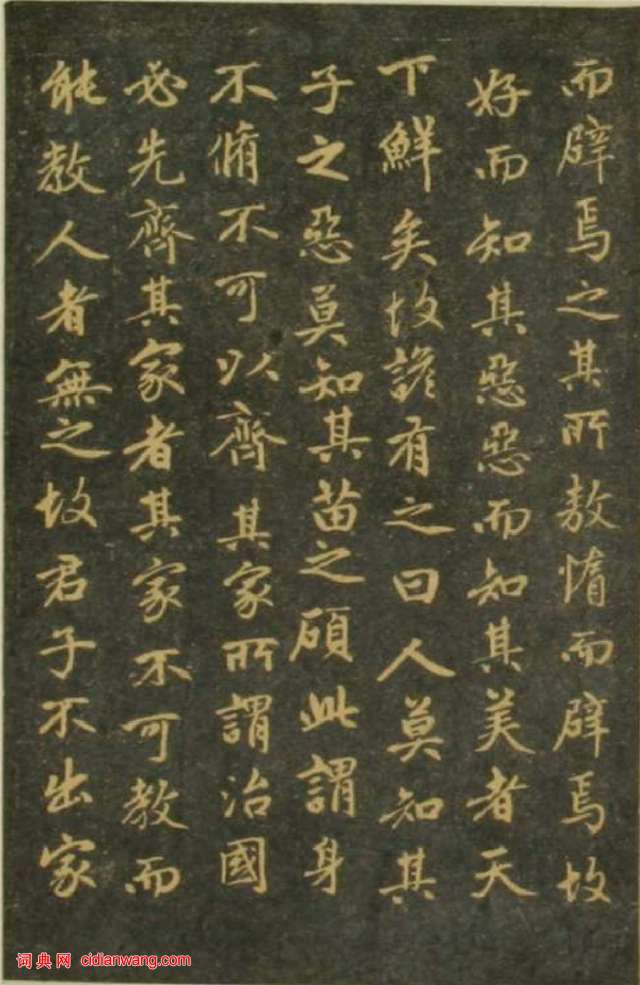 而辟焉之其所敖惰而辟焉故
好而知其惡惡而知其美者天
下鮮矣故諺有之曰人莫知其
子之惡莫知其苗之碩此謂身
不脩不可以齊其家所謂治國
必先齊其家者其家不可教而
能教人者無之故君子不出家
词典网 cidianwang.com